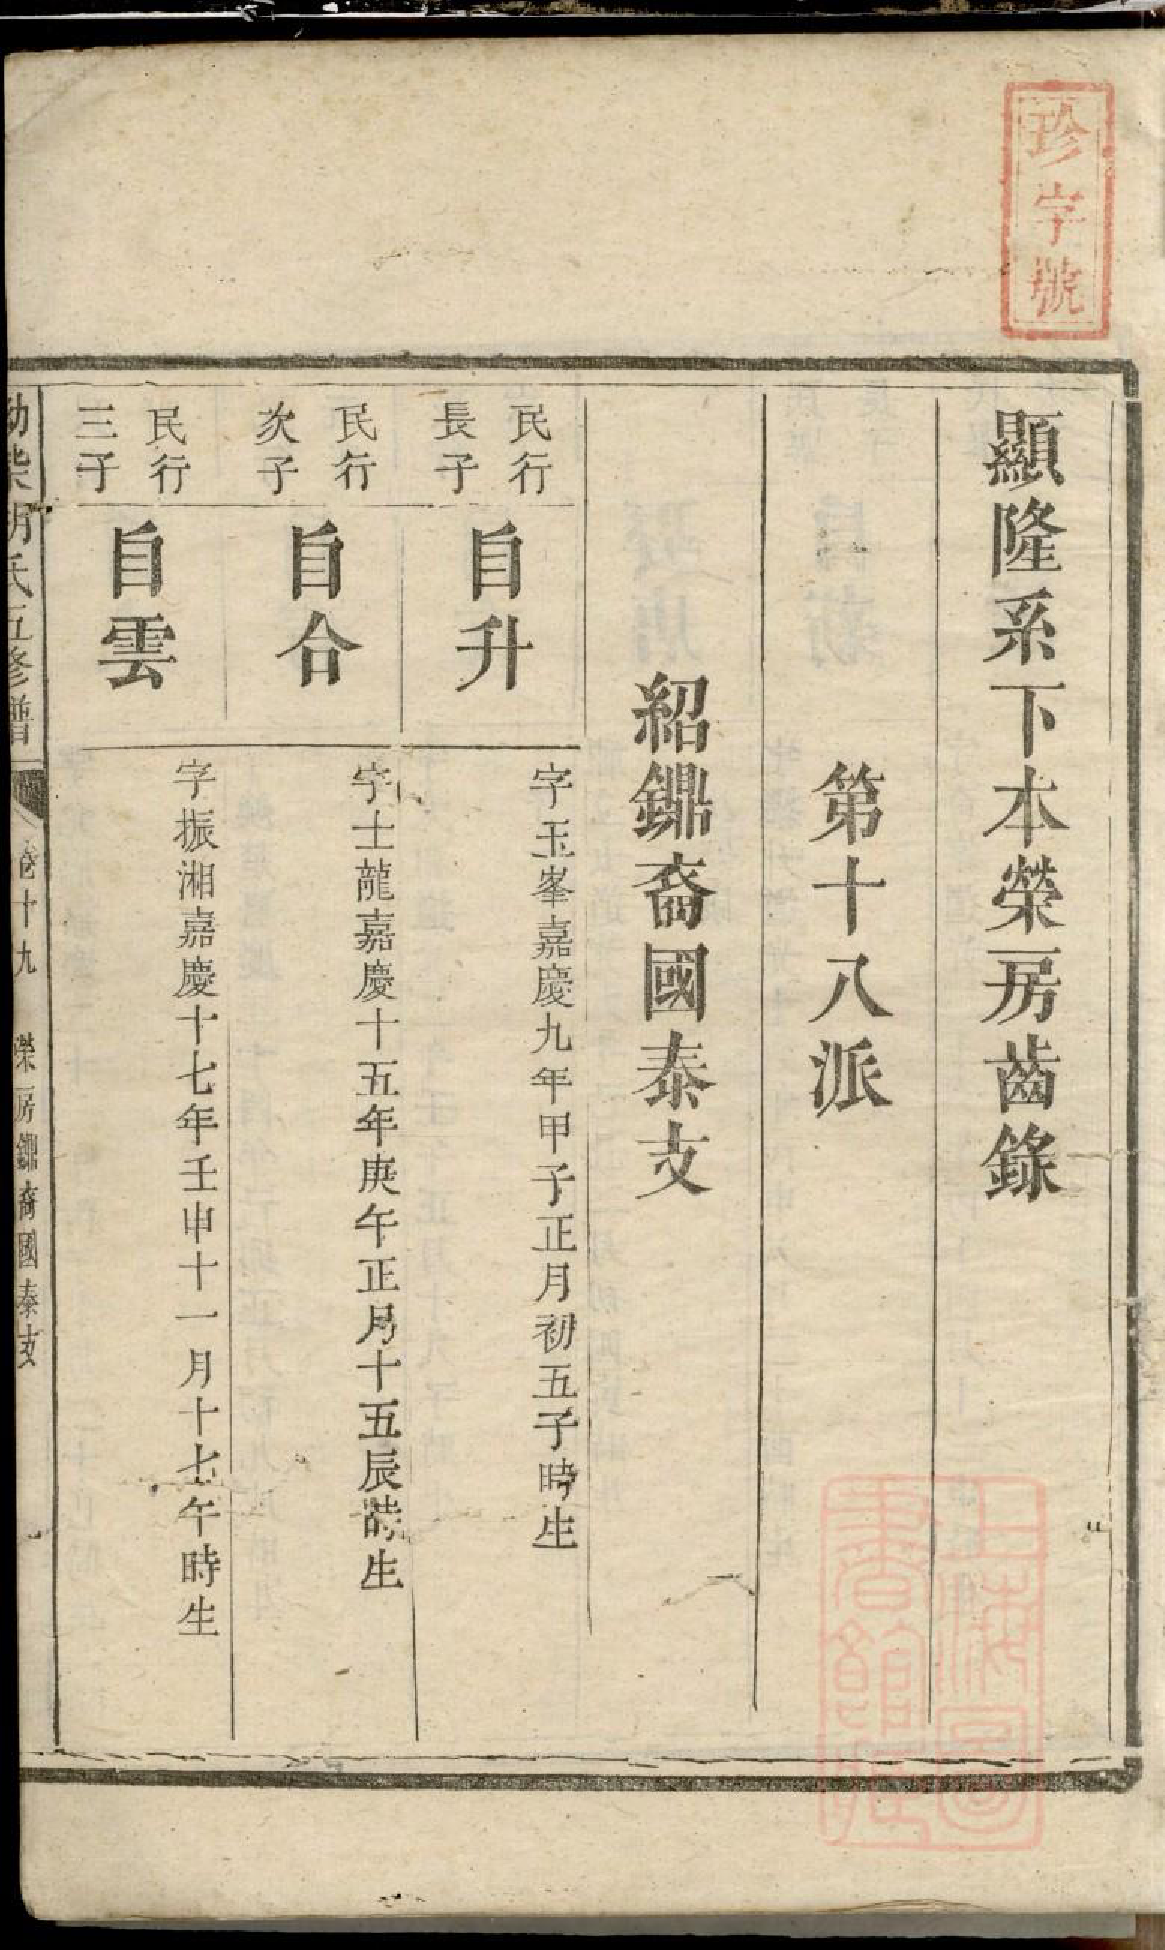 珍字號
顯隆系下本榮房齒錄
第十八派
紹鐤裔國泰支
民行
長子
自升
字玉峯嘉慶九年甲子正月初五子時生
民行
次子
自合
字士龍嘉慶十五年庚午正月十五辰時生
民行
三子
自雲
字振湘嘉慶十七年壬申十一月十七午時生
胡氏五修譜
卷十九
榮房鐤裔國泰支
上海圖書館藏